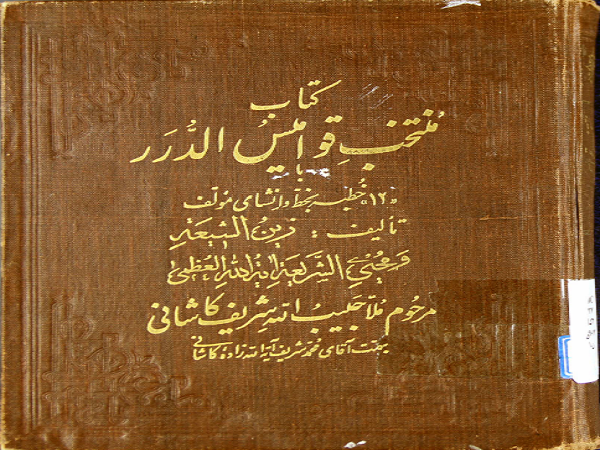 کتاب
مُنتخبِ قوامیسُ الدُّرَر
با
«۱۲» خُطبه بخط و انشای مولف
تألیف: زین الشیعه
و مُحیی الشریعة آیة الله العظمی
مرحوم مُلّا حبیب الله شریف کاشانی
بهمت آقای محمد شریف آیة الله زاده کاشانی